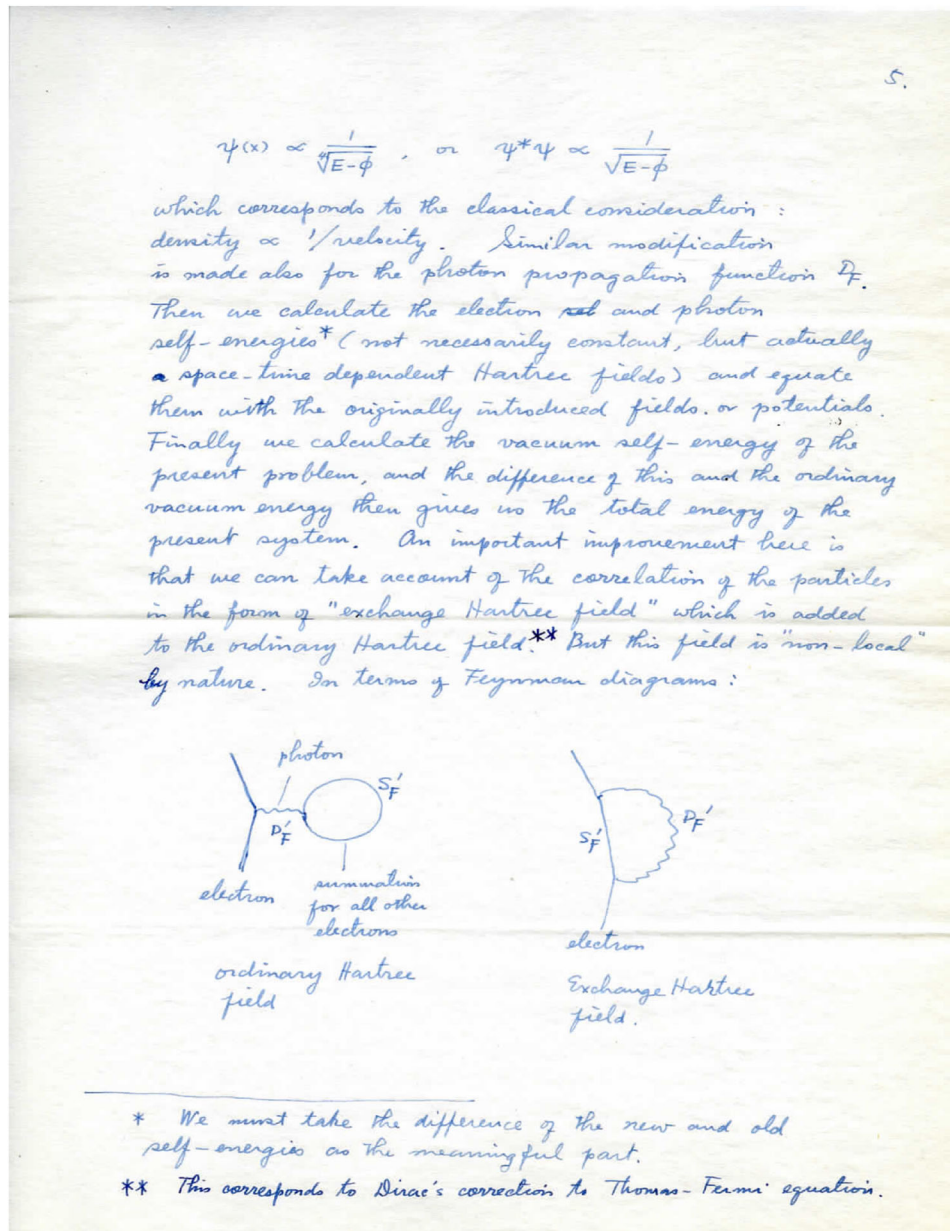 5.
ψ(x) ∝ 1/∜(E-ϕ) , or ψ*ψ ∝ 1/√(E-ϕ)
which corresponds to the classical consideration :
density ∝ 1/velocity. Similar modification
is made also for the photon propagation function D_F.
Then we calculate the electron and photon
self-energies* (not necessarily constant, but actually
a space-time dependent Hartree fields) and equate
them with the originally introduced fields. or potentials.
Finally we calculate the vacuum self-energy of the
present problem, and the difference of this and the ordinary
vacuum energy then gives us the total energy of the
present system. An important improvement here is
that we can take account of the correlation of the particles
in the form of "exchange Hartree field" which is added
to the ordinary Hartree field.** But this field is "non-local"
by nature. In terms of Feynman diagrams :
photon
S_F'
D_F'
electron
summation
for all other
electrons
ordinary Hartree
field
S_F'
D_F'
electron
Exchange Hartree
field.
* We must take the difference of the new and old
self-energies as the meaningful part.
** This corresponds to Dirac's correction to Thomas-Fermi equation.